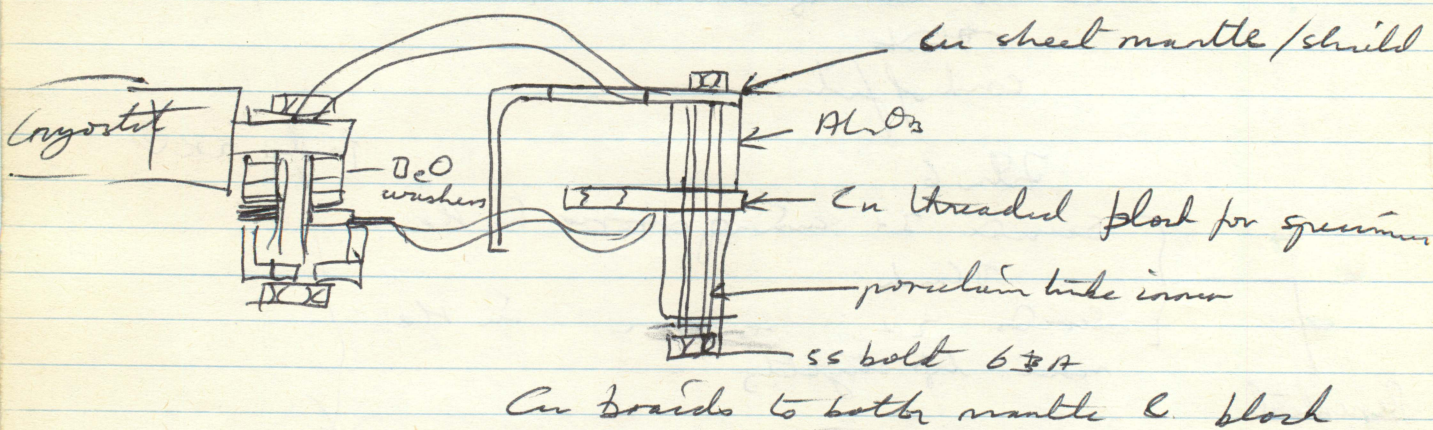 Cu sheet mantle / shield
Cryostat
Al₂O₃
BeO
washers
Cu threaded block for specimen
porcelain tube inner
ss bolt 6BA
Cu braids to both mantle & block